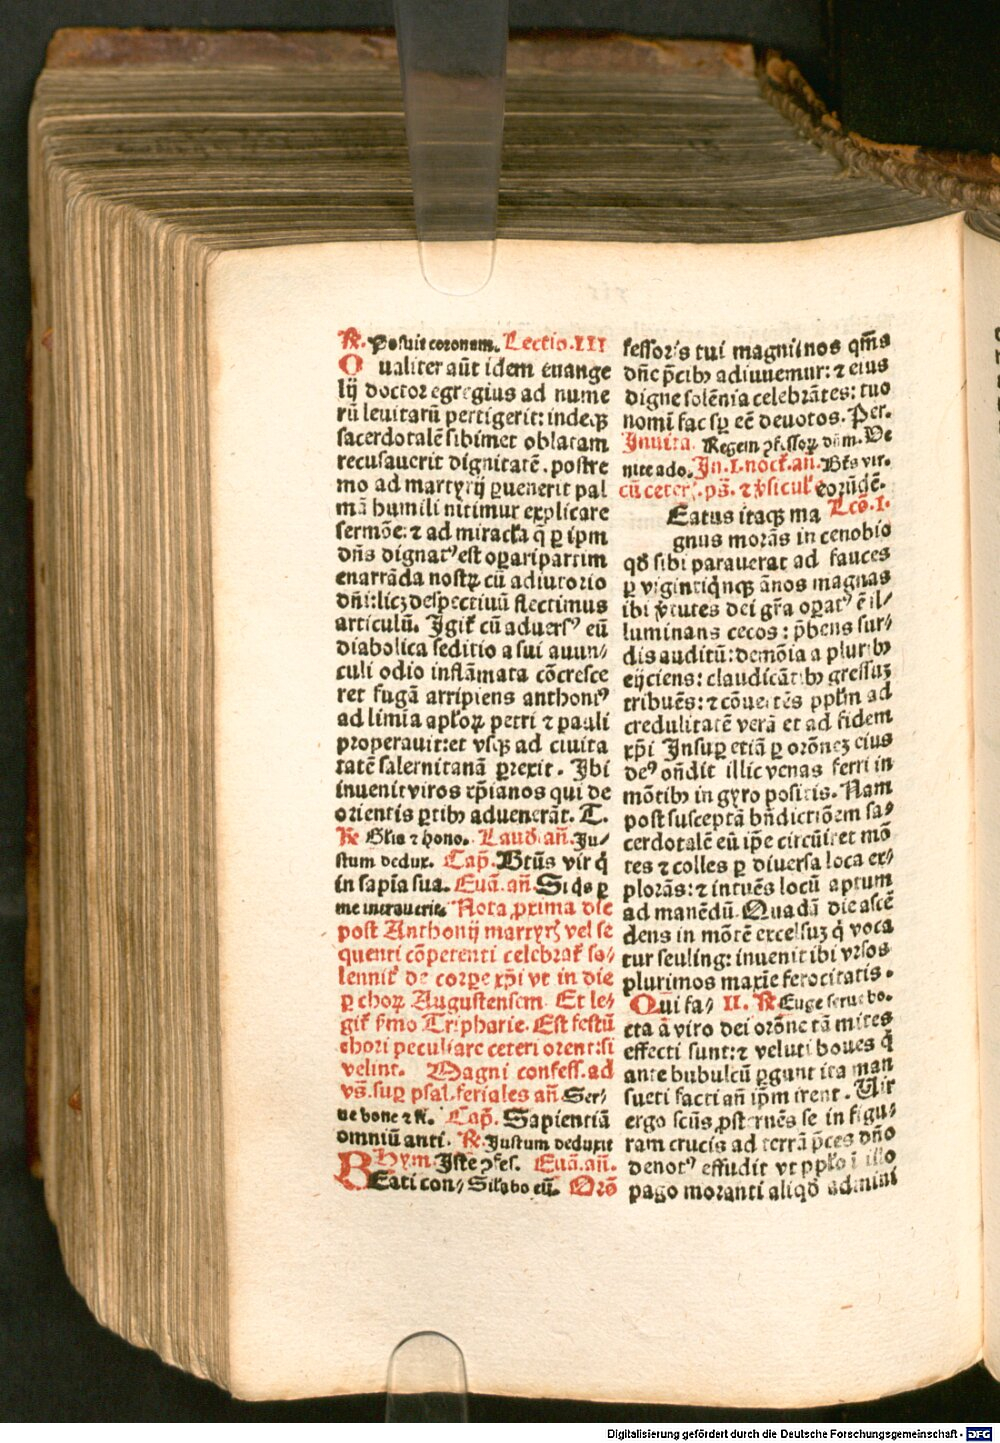 R. Posuit coronam. Lectio.III
Qualiter aūt idem euange
lij doctor egregius ad nume
rū leuitarū pertigerit: indeqꝫ
sacerdotalē sibimet oblatam
recusauerit dignitatē. postre
mo ad martyrij ꝑuenerit pal
mā humili nitimur explicare
sermōe: ⁊ ad miracl̄a q̄ ꝑ ipm
dn̄s dignat⁹ est oꝑari partim
enarrāda nostꝝ cū adiutorio
dn̄i: licꝫ despectiuū flectimus
articulū. Igit̄ cū aduers⁹ eū
diabolica seditio a sui auun⸗
culi odio inflāmata cōcresce
ret fugā arripiens anthoni⁹
ad limia apl̄oꝝ petri ⁊ pauli
properauit: et vsqꝫ ad ciuita
tatē salernitanā ꝑrexit. Ibi
inuenit viros xp̄ianos qui de
orientis ꝑtibꝫ aduenerāt. T.
R. Gl̄ia ⁊ hono. Laud̄.an̄. Iu⸗
stum dedux. Cap̄. Btūs vir q̄
in sapīa sua. Euā.an̄. Si qs ꝑ
me introuerit. Nota prima die
post Anthonij martyrꝭ vel se
quenti cōpetenti celebrat̄ so⸗
lennit̄ de corꝑe xp̄i vt in die
ꝑ choꝝ Augustensem. Et le⸗
git̄ ẜmo Tripharie. Est festū
chori peculiare ceteri orent: si
velint. Magni confess. ad
vs̄. suꝑ psal. feriales an̄ Ser⸗
ue bone ⁊ R. Cap̄. Sapientiā
omniū anti. R. Iustum deduxit
Hym. Iste ꝯfes. Euā.an̄.
BEati con⸗ Sil̄abo eū. Orō
fessoris tui magni nos qm̄s
dn̄e p̄cibꝫ adiuuemur: ⁊ eius
digne solēnia celebrātes: tuo
nomī fac sꝑ eē deuotos. Per.
Inuita. Regem ꝯfessoꝝ dn̄m. Ve
nite ado. In.I.noct̄.an̄. Bt̄s vir.
cū ceterꝭ. ps̄. ⁊ v̄sicul̄ eorūdē.
Eatus itaqꝫ ma Lcō.I.
gnus morās in cenobio
qd̄ sibi parauerat ad fauces
ꝑ vigintiqnqꝫ ānos magnas
ibi v̄tutes dei gr̄a oꝑat⁹ ē il⸗
luminans cecos: p̄bens sur⸗
dis auditū: demōia a pluribꝫ
eijciens: claudicātibꝫ gressuꝫ
tribuēs: ⁊ cōuertēs ppl̄m ad
credulitatē verā et ad fidem
xp̄i Insuꝑ etiā ꝑ orōneꝫ eius
de⁹ on̄dit illic venas ferri in
mōtibꝫ in gyro positis. Nam
post susceptā bn̄dictiōem sa⸗
cerdotalē eū ip̄e circūiret mō
tes ⁊ colles ꝑ diuersa loca ex⸗
plorās: ⁊ intuēs locū aptum
ad manēdū. Quadā die ascē
dens in mōtē excelsuꝫ q̄ voca
tur seuling: inuenit ibi vrsos
plurimos maxīe ferocitatis.
Qui fa⸗ II. R. Euge serue bo.
cta ā viro dei orōne tā mites
effecti sunt: ⁊ veluti boues q̄
ante bubulcū ꝑgunt ita man
sueti facti an̄ ip̄m irent. Uir
ergo sc̄us ꝓsternēs se in figu⸗
ram crucis ad terrā p̄ces dn̄o
denot⁹ effudit vt ppl̄o ī illo
pago moranti aliqd̄ admini
Digitalisierung gefördert durch die Deutsche Forschungsgemeinschaft - DFG